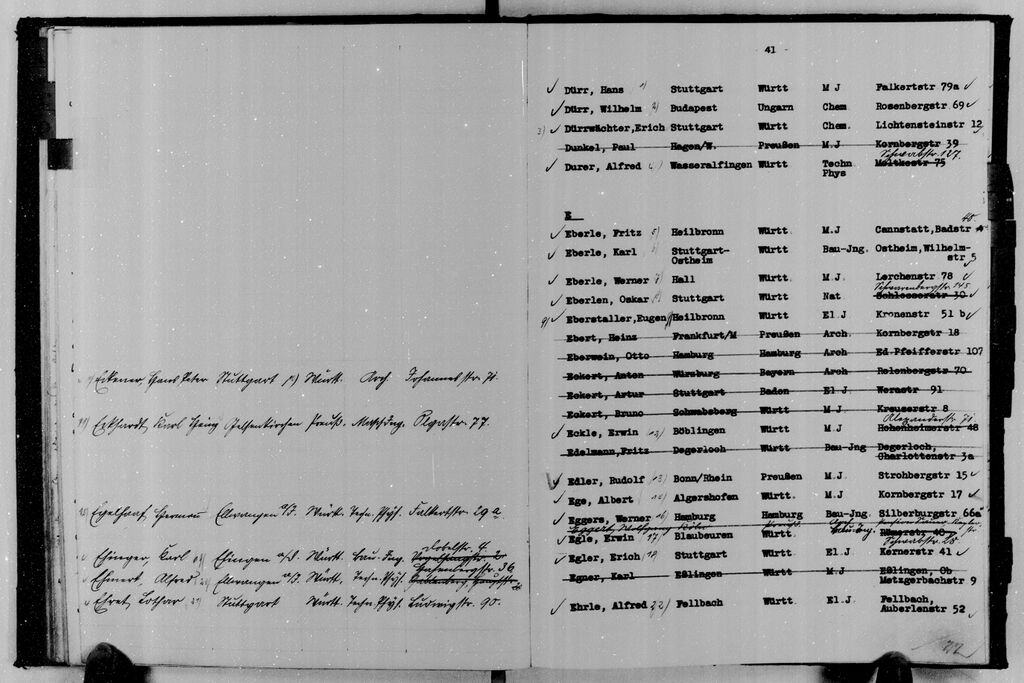 Eckener, Hans Peter Stuttgart Württ. Arch. Johannesstr.
Eckhardt Karl Heinz Gelsenkirchen Preuß. Masch.Ing. 77
Egelhaaf Hermann Ellwangen a/J. Württ. Techn. Phys. Falkertstr. 29a
Ehinger, Karl Ehingen a/D. Württ. Bau-Ing.
Ehmert, Alfred Ellwangen a/J. Württ. Techn. Phys. Hasenbergstr. 56
Ehret Lothar Stuttgart Württ. Techn. Phys. Ludwigstr. 90.
41 -
Dürr, Hans Stuttgart Württ M J Falkertstr 79a
Dürr, Wilhelm 2) Budapest Ungarn Chem Rosenbergstr 69
3) Dürrwächter,Erich Stuttgart Württ Chem. Lichtensteinstr 12
Dunkel, Paul Hagen/W. Preußen M.J Kornbergstr 39
Schwabstr. 127.
Durer, Alfred 4) Wasseralfingen Württ Techn Moltkestr 75
Phys
E
40.
Eberle, Fritz 5) Heilbronn Württ. M.J Cannstatt,Badstr
Eberle, Karl Stuttgart- Württ. Bau-Jng. Ostheim,Wilhelm-
Ostheim str 5
Eberle, Werner 7) Hall Württ. M J. Lerchenstr 78
Schwarenbergstr. 145
Eberlen, Oskar Stuttgart Württ Nat Schlosserstr 30
9) Eberstaller,Eugen Heilbronn Württ. El J Kronenstr 51 b
Ebert, Heinz Frankfurt/M Preußen Arch. Kornbergstr 18
Eberwein, Otto Hamburg Hamburg Arch Ed-Pfeifferstr 107
Eckert, Anton Würzburg Bayern Arch Relenbergstr 70
Eckert, Artur Stuttgart Baden El J Werastr 91
Eckert, Bruno Schwabsberg Württ M J Kreuserstr 8
Alexanderstr. 71
Eckle, Erwin Böblingen Württ M J Hohenheimerstr 48
Edelmann,Fritz Degerloch Württ Bau-Jng Degerloch,
Charlottenstr 3a
Edler, Rudolf 13) Bonn/Rhein Preußen M.J Strohbergstr 15
Ege, Albert Algershofen Württ. M J Kornbergstr 17
Eggers, Werner 16) Hamburg Hamburg Bau-Jng. Silberburgstr 66a
Egle, Erwin 17) Blaubeuren Württ.
Schwabstr. 28
Egler, Erich Stuttgart Württ El.J Kernerstr 41
Egner, Karl Eßlingen Württ M J Eßlingen, Ob
Metzgerbachstr 9
Ehrle, Alfred 22) Fellbach Württ El.J Fellbach,
Auberlenstr 52
22